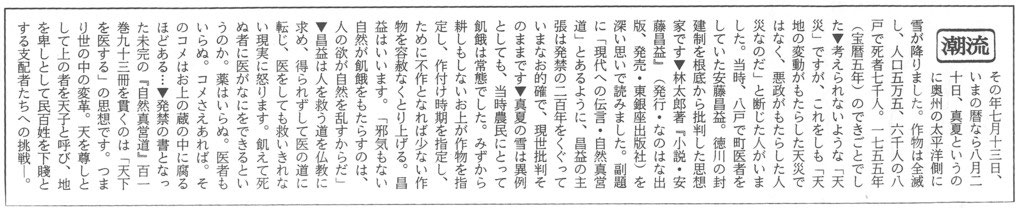 潮流
その年七月十三日、
いまの暦なら八月二
十日、真夏というの
に奥州の太平洋側に
雪が降りました。作物は全滅
し、人口五万五、六千人の八
戸で死者七千人。一七五五年
（宝暦五年）のできごとでし
た▼考えられないような「天
災」ですが、これをしも「天
地の変動がもたらした天災で
はなく、悪政がもたらした人
災なのだ」と断じた人がいま
した。当時、八戸で町医者を
していた安藤昌益。徳川の封
建制を根底から批判した思想
家です▼林太郎著『小説・安
藤昌益』（発行・なのはな出
版、発売・東銀座出版社）を
深い思いで読みました。副題
に「現代への伝言・自然真営
道」とあるように、昌益の主
張は発禁の二百年をくぐって
いまなお的確で、現世批判そ
のままです▼真夏の雪は異例
としても、当時農民にとって
飢餓は常態でした。みずから
耕しもしないお上が作物を指
定し、作付け時期を指定し、
ために不作となれば少ない作
物を容赦なくとり上げる。昌
益はいいます。「邪気もない
自然が飢餓をもたらすのは、
人の欲が自然を乱すからだ」
▼昌益は人を救う道を仏教に
求め、得られずして医の道に
転じ、医をしても救いきれな
い現実に怒ります。飢えて死
ぬ者に医がなにをできるとい
うのか。薬はいらぬ。医者も
いらぬ。コメさえあれば。そ
のコメはお上の蔵の中に腐る
ほどある…▼発禁の書となっ
た未完の『自然真営道』百一
巻九十三冊を貫くのは「天下
を医する」の思想です。つま
り世の中の変革。天を尊しと
して上の者を天子と呼び、地
を卑しとして民百姓を下賤と
する支配者たちへの挑戦―。